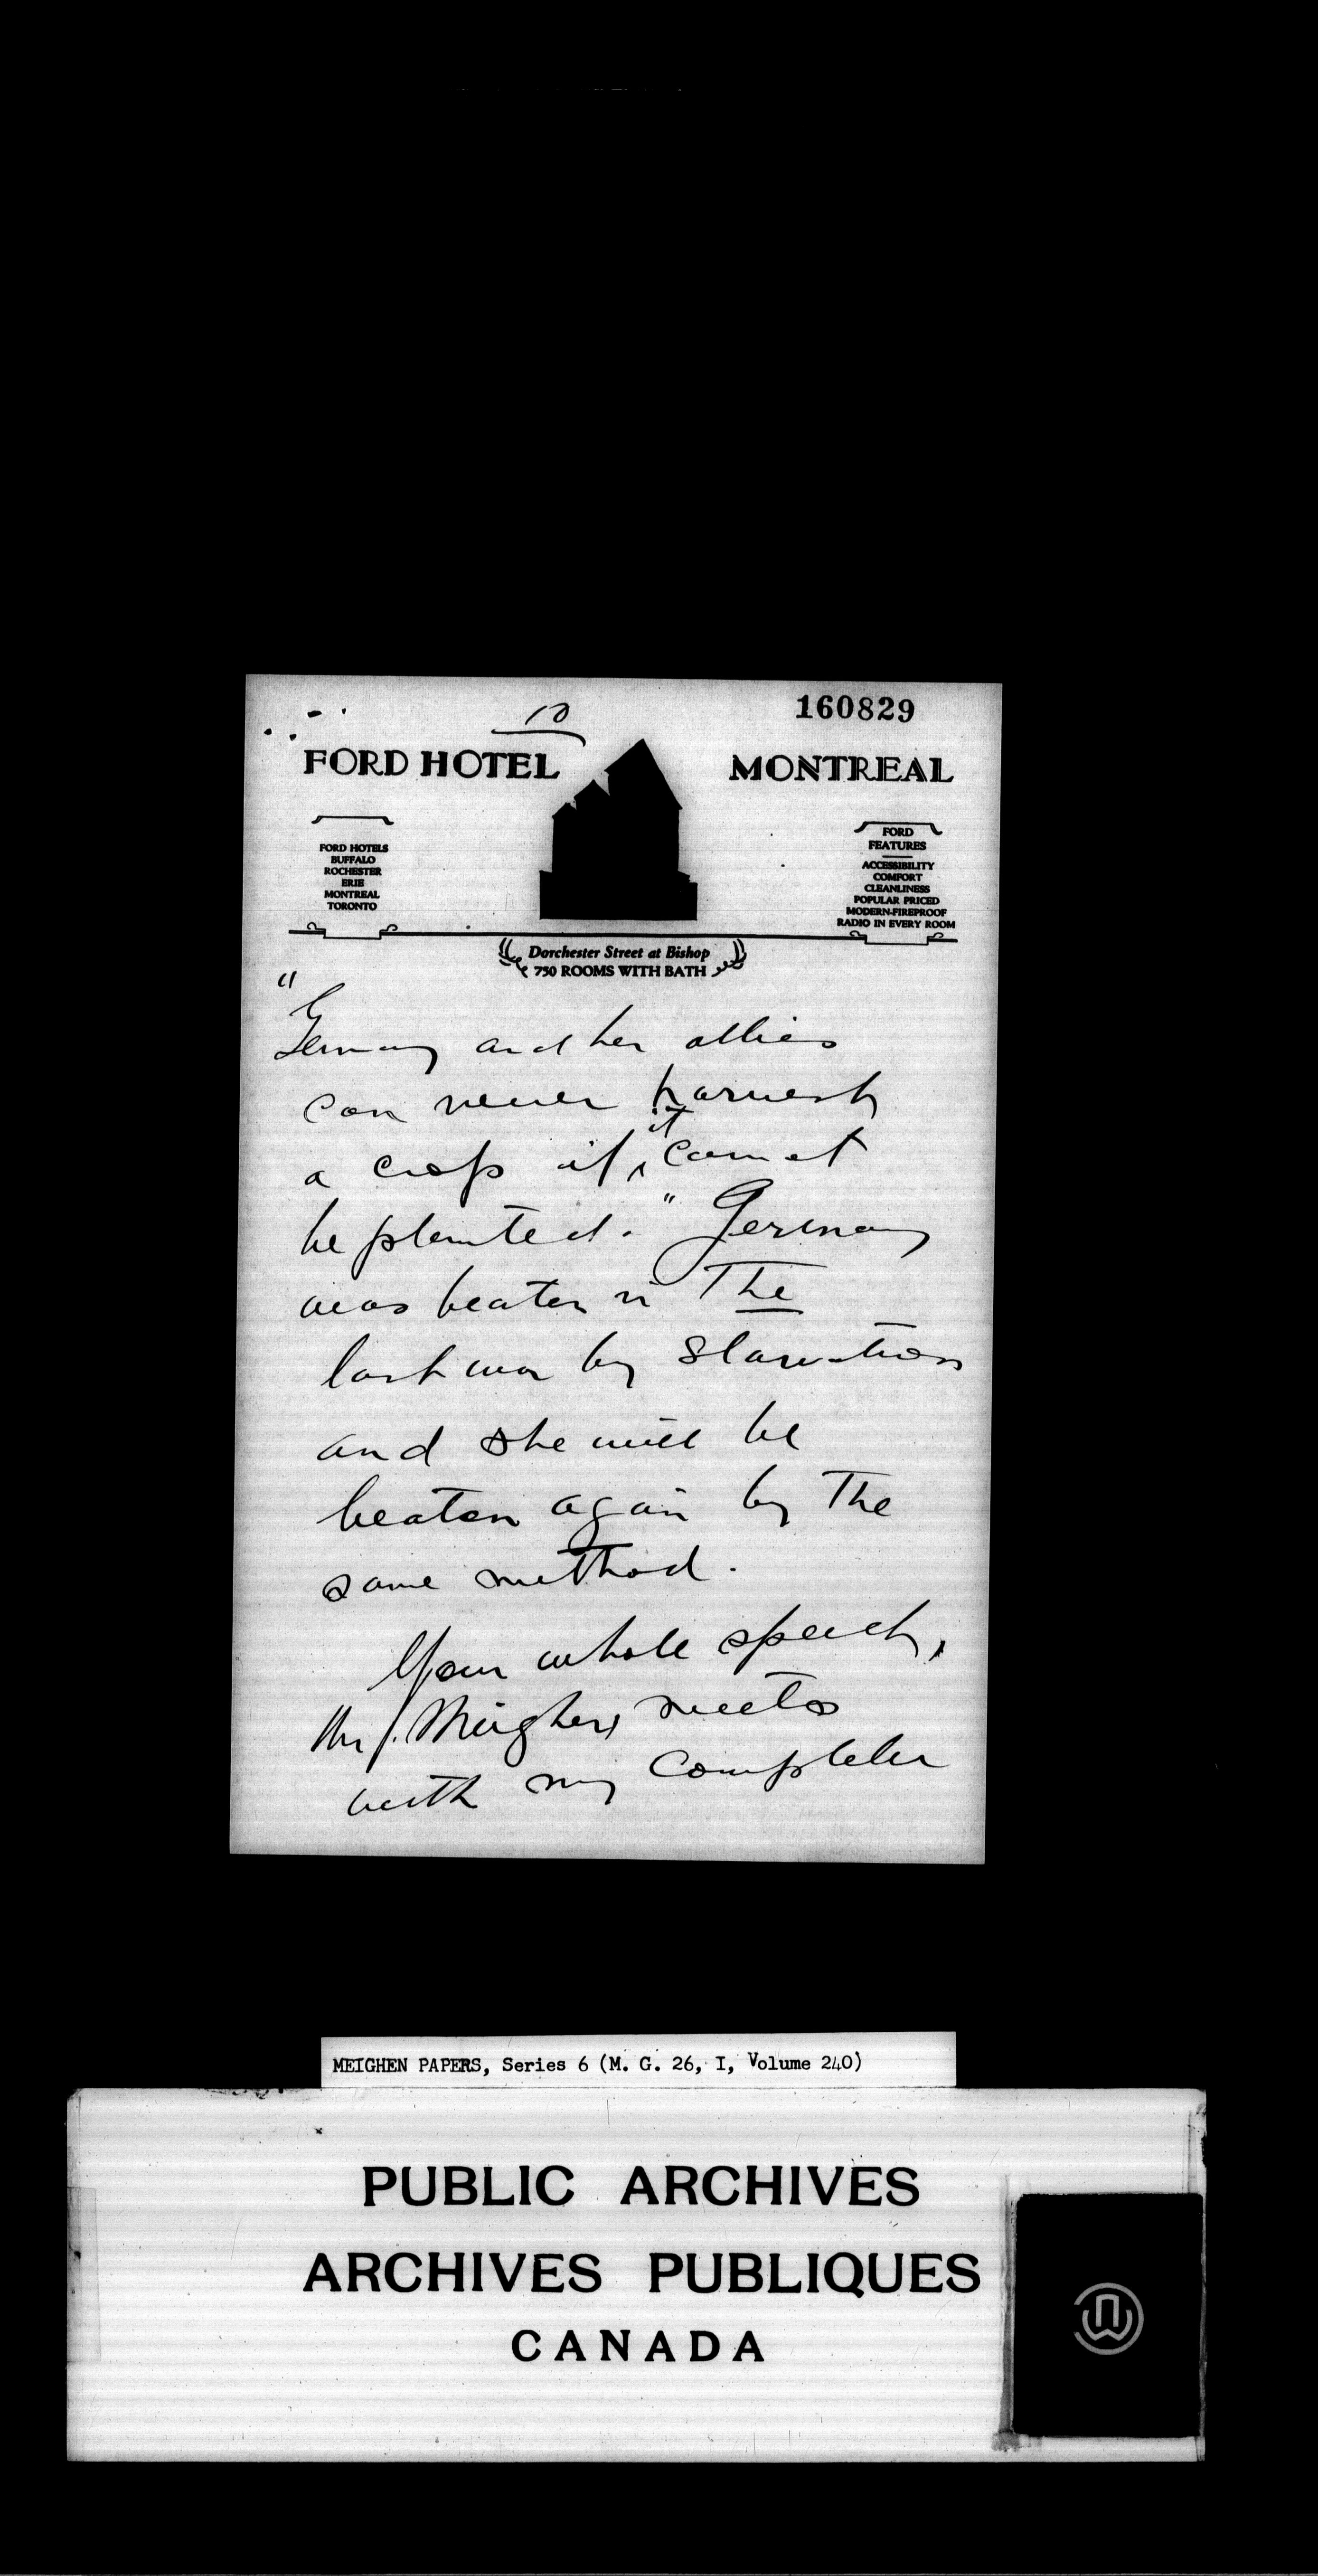 10
160829
FORD HOTEL MONTREAL
FORD HOTELS
BUFFALO
ROCHESTER
ERIE
MONTREAL
TORONTO
FORD
FEATURES
ACCESSIBILITY
COMFORT
CLEANLINESS
POPULAR PRICED
MODERN-FIREPROOF
RADIO IN EVERY ROOM
Dorchester Street at Bishop
750 ROOMS WITH BATH
"Germany and her allies
can never harvest
a crop if it cannot
be planted." Germany
was beaten in The
last war by starvation
and she will be
beaten again by The
same method.
Your whole speech,
Mr. Meighen, meets
with my complete
MEIGHEN PAPERS, Series 6 (M. G. 26, I, Volume 240)
PUBLIC ARCHIVES
ARCHIVES PUBLIQUES
CANADA